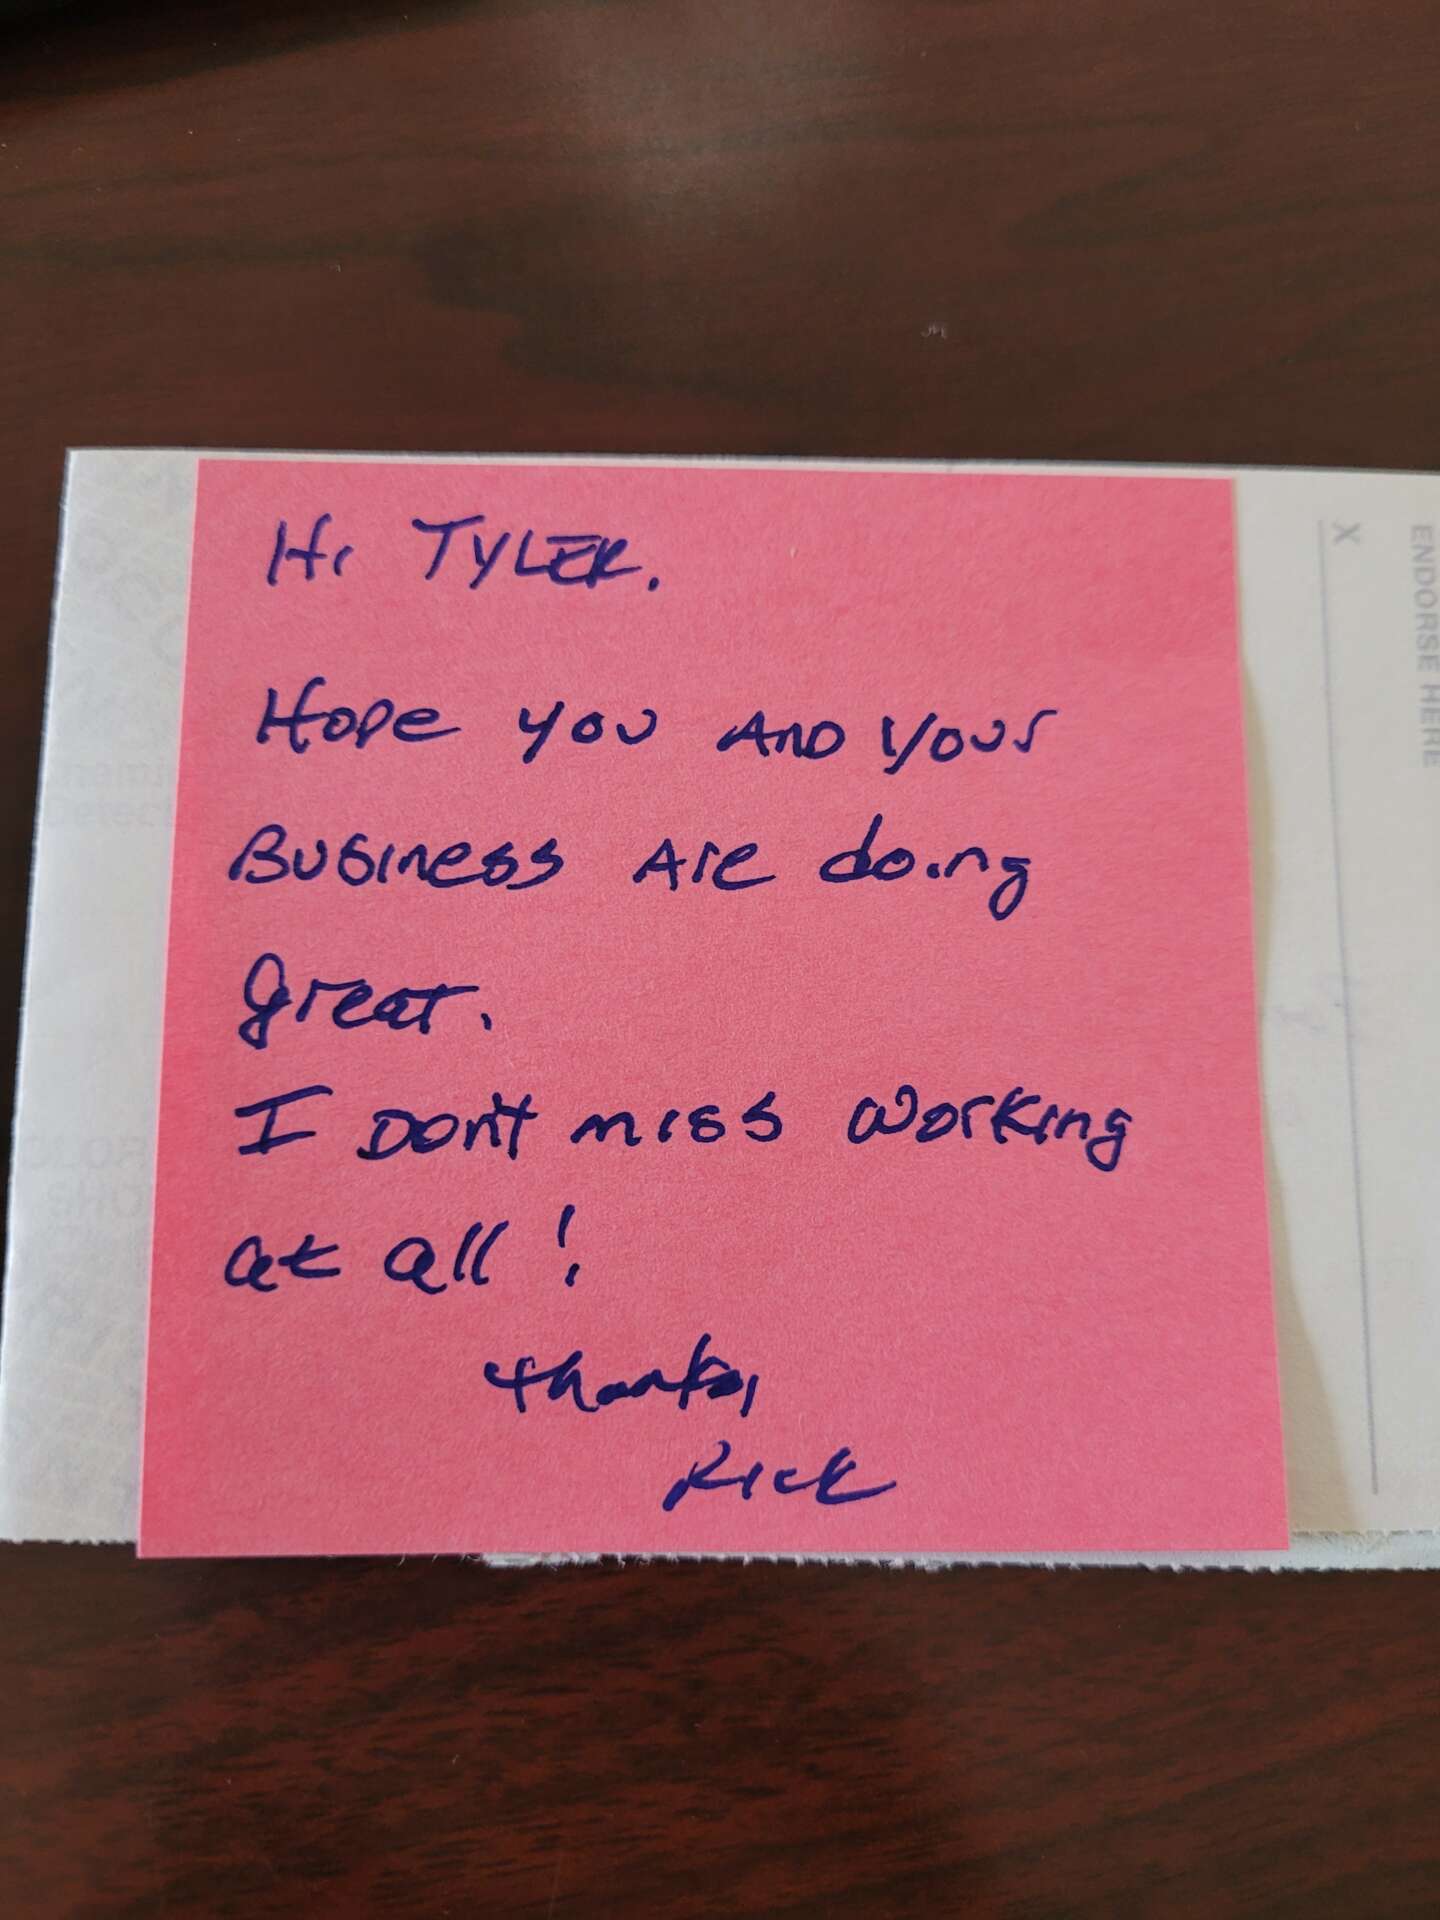 Hi TYLER.
Hope you AND yours
Business Are doing
great.
I DON'T miss working
at all!
thanks,
Rick
X
ENDORSE HERE